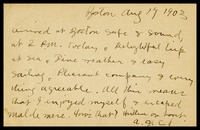 Boston Aug 19 1903
Arrived at Boston Safe & Sound,
at 2 P.M. today. Delightful trip
at sea. Fine weather & easy
Sailing. Pleasant company & every
thing agreeable. All this means
that I enjoyed myself & escaped
mal de mere. How's that?
A.B.C.